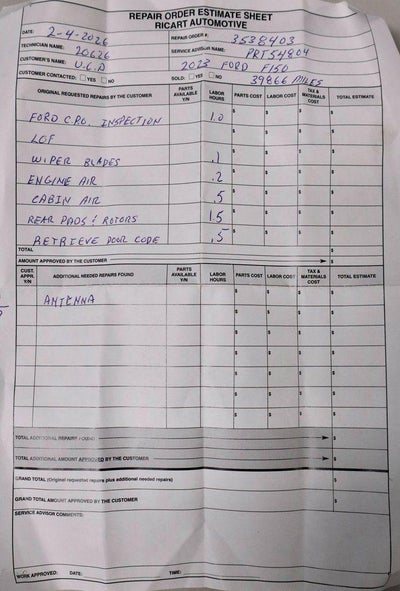 REPAIR ORDER ESTIMATE SHEET
RICART AUTOMOTIVE
DATE: 2-4-2026 REPAIR ORDER #: 3538403
TECHNICIAN NAME: 20626 SERVICE ADVISOR NAME: PRT54804
CUSTOMER'S NAME: U.C.D 2023 FORD F150
CUSTOMER CONTACTED: YES NO SOLD: YES NO 39866 MILES
ORIGINAL REQUESTED REPAIRS BY THE CUSTOMER PARTS AVAILABLE Y/N LABOR HOURS PARTS COST LABOR COST TAX & MATERIALS COST TOTAL ESTIMATE
FORD C.P.O. INSPECTION 1.0 $ $ $ $
LOF $ $ $ $
WIPER BLADES .1 $ $ $ $
ENGINE AIR .2 $ $ $ $
CABIN AIR .5 $ $ $ $
REAR PADS & ROTORS 1.5 $ $ $ $
RETRIEVE DOOR CODE .5 $ $ $ $
TOTAL $
AMOUNT APPROVED BY THE CUSTOMER $
CUST. APPR. Y/N ADDITIONAL NEEDED REPAIRS FOUND PARTS AVAILABLE Y/N LABOR HOURS PARTS COST LABOR COST TAX & MATERIALS COST TOTAL ESTIMATE
ANTENNA $ $ $ $
$ $ $ $
$ $ $ $
$ $ $ $
$ $ $ $
$ $ $ $
$ $ $ $
TOTAL ADDITIONAL REPAIRS FOUND $
TOTAL ADDITIONAL AMOUNT APPROVED BY THE CUSTOMER $
GRAND TOTAL (Original requested repairs plus additional needed repairs) $
GRAND TOTAL AMOUNT APPROVED BY THE CUSTOMER $
SERVICE ADVISOR COMMENTS:
WORK APPROVED: DATE: TIME: